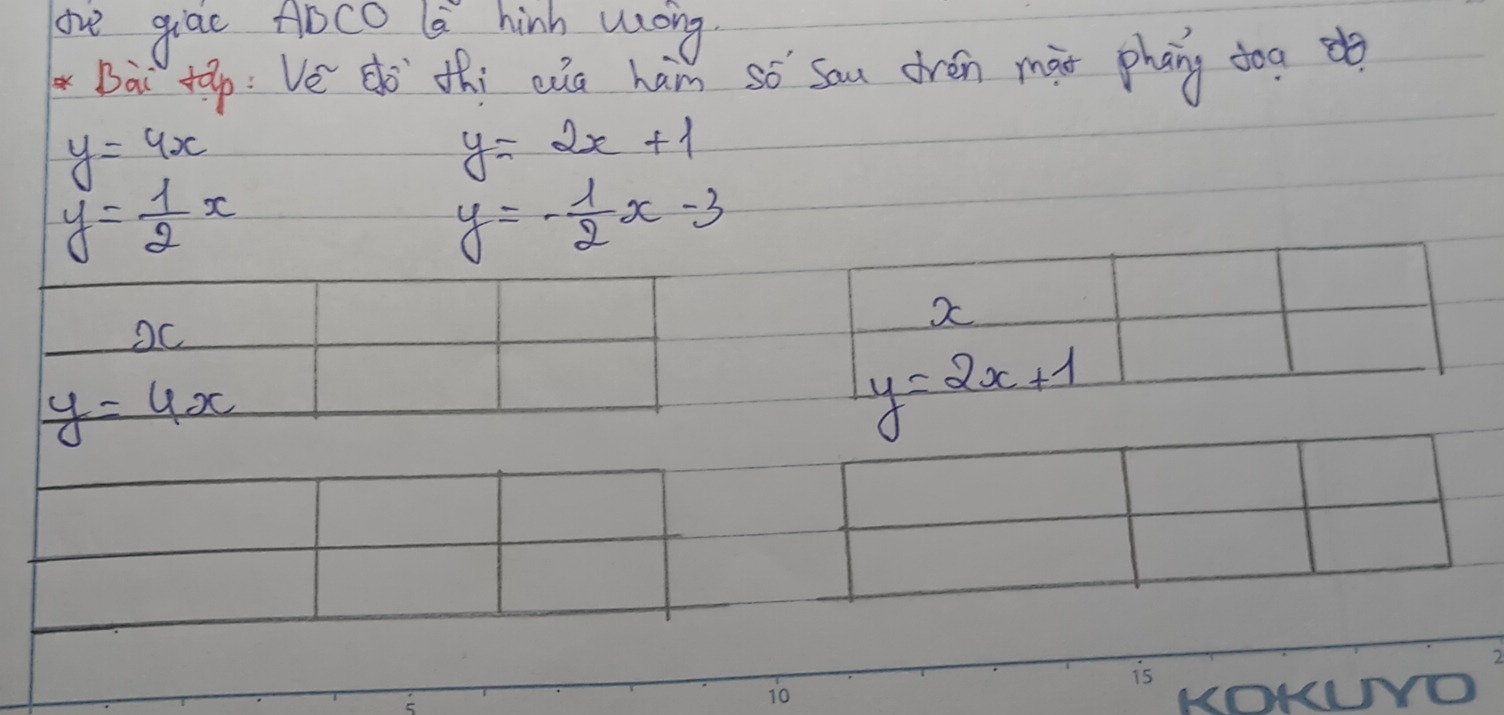 tứ giác ABCO là hình vuông.
* Bài tập: Vẽ đồ thị của hàm số sau trên mặt phẳng toạ độ
y = 4x y = 2x + 1
y = 1/2 x y = -1/2 x - 3
x x
y = 4x y = 2x + 1
5 10 15 2
KOKUYO